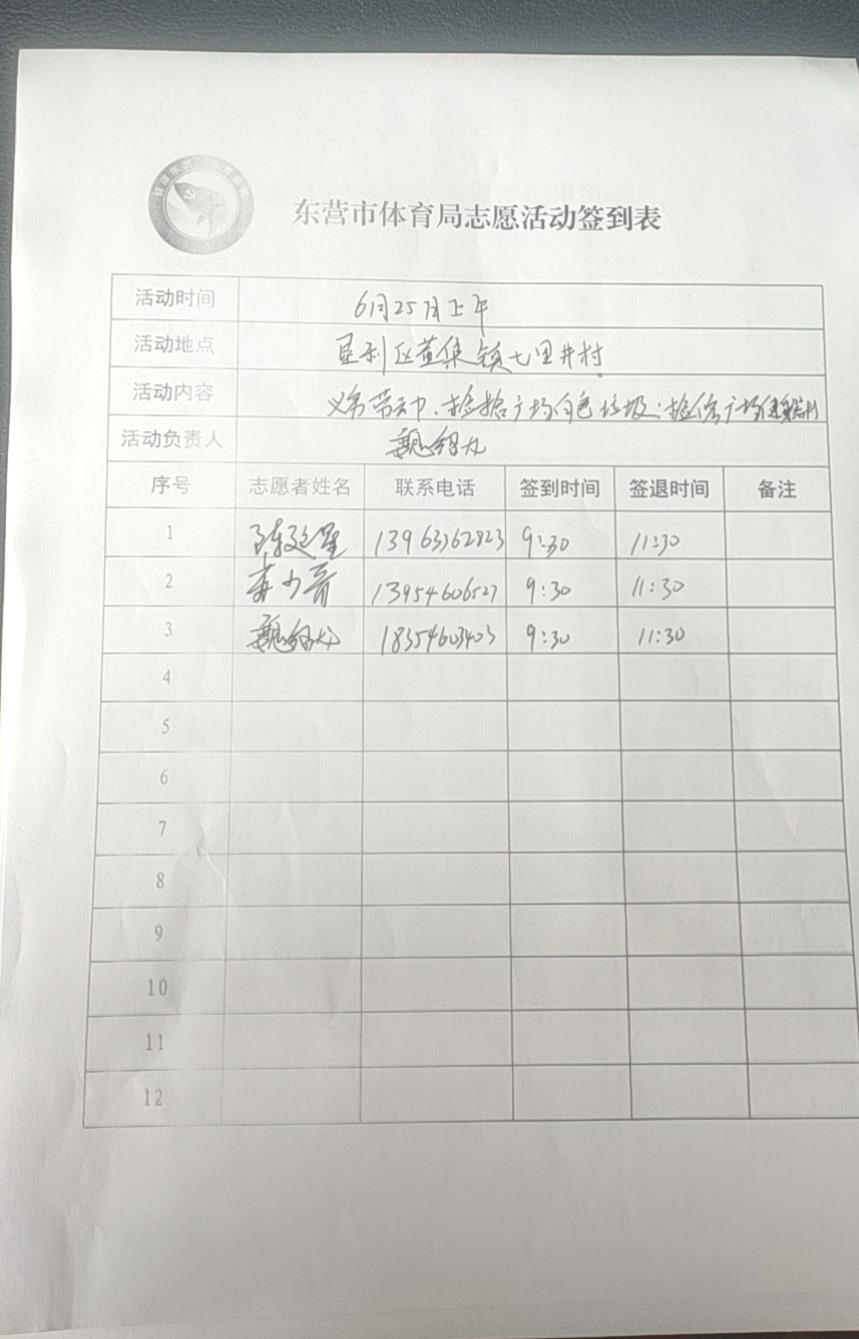 东营市体育局志愿活动签到表
活动时间 6月25日上午
活动地点 垦利区董集镇七里井村
活动内容 义务劳动、捡拾广场白色垃圾;检修广场健身器材
活动负责人
序号 志愿者姓名 联系电话 签到时间 签退时间 备注
1 13963362823 9:30 11:30
2 13954606527 9:30 11:30
3 18354603403 9:30 11:30
4
5
6
7
8
9
10
11
12